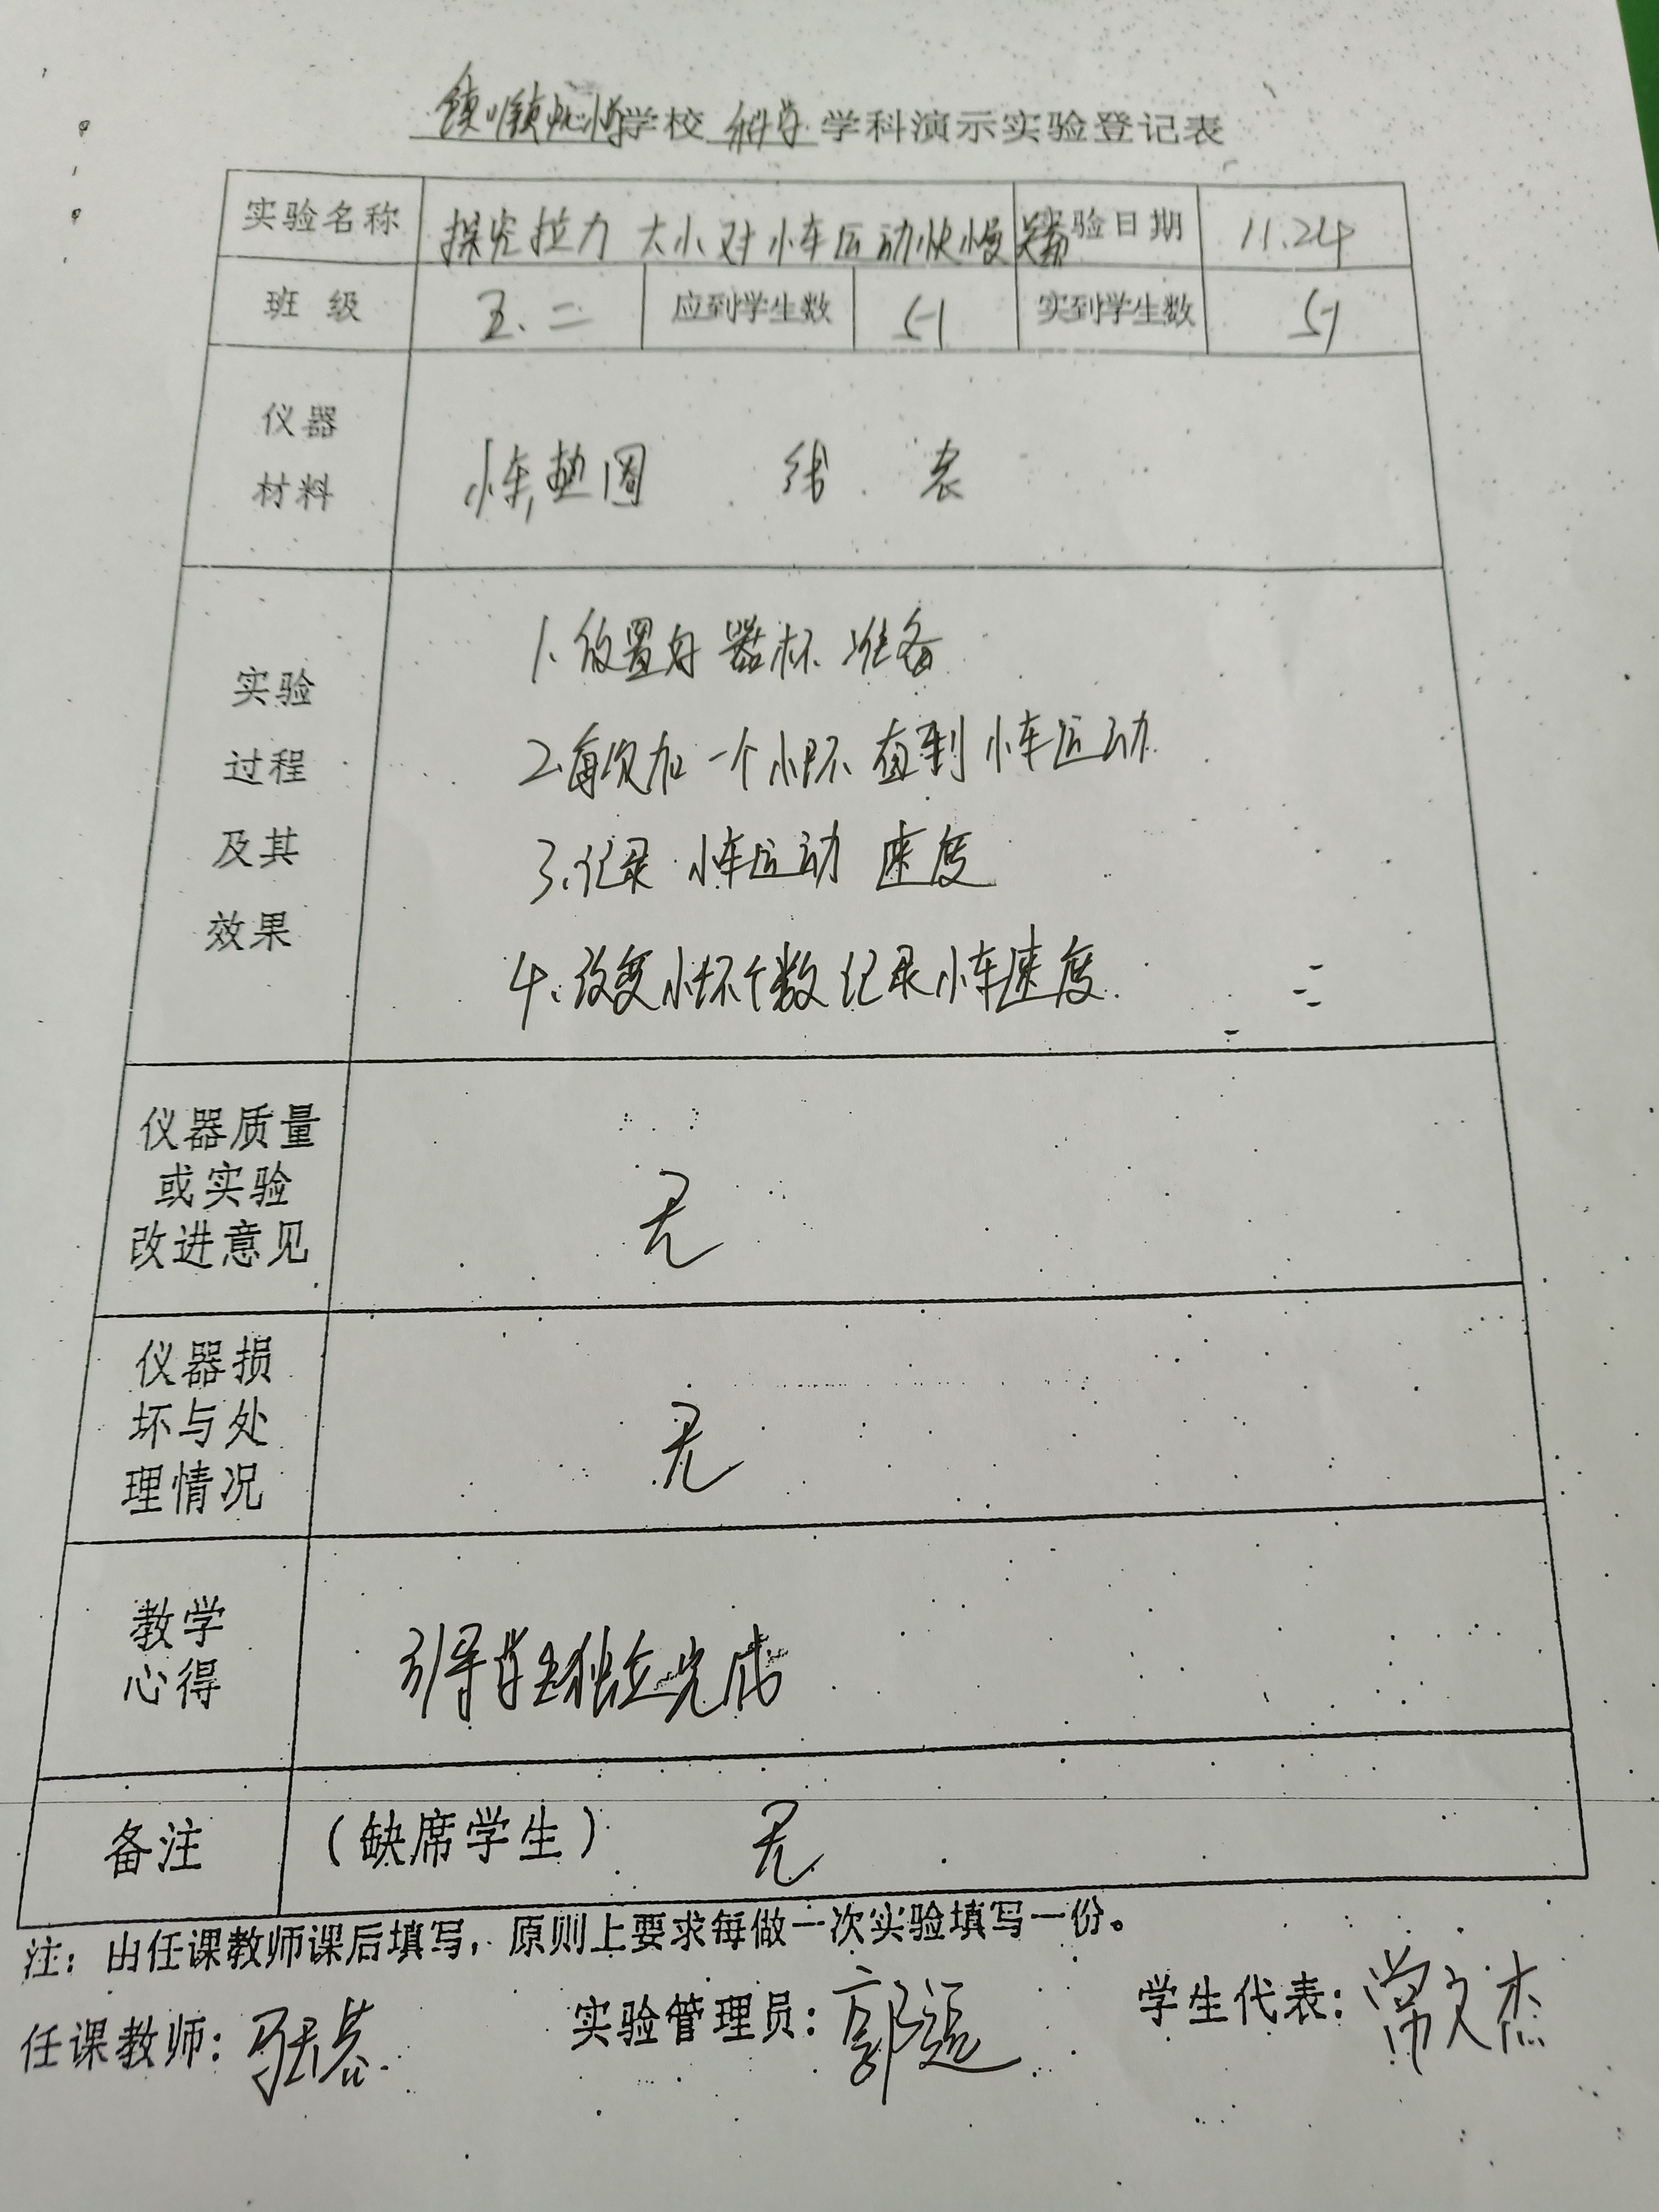 镇川镇中心小学学校 科学 学科演示实验登记表
实验名称 探究拉力大小对小车运动快慢 实验日期 11.24
班级 五.二 应到学生数 51 实到学生数 51
仪器
材料
小车,垫圈 线 表
实验
过程
及其
效果
1.放置好器材准备
2.每次加一个小环直到小车运动
3.记录小车运动速度
4.改变小环个数记录小车速度.
仪器质量
或实验
改进意见
无
仪器损
坏与处
理情况
无
教学
心得
引导学生独立完成
备注 (缺席学生) 无
注：由任课教师课后填写，原则上要求每做一次实验填写一份。
任课教师： 实验管理员：郭远 学生代表：常文杰